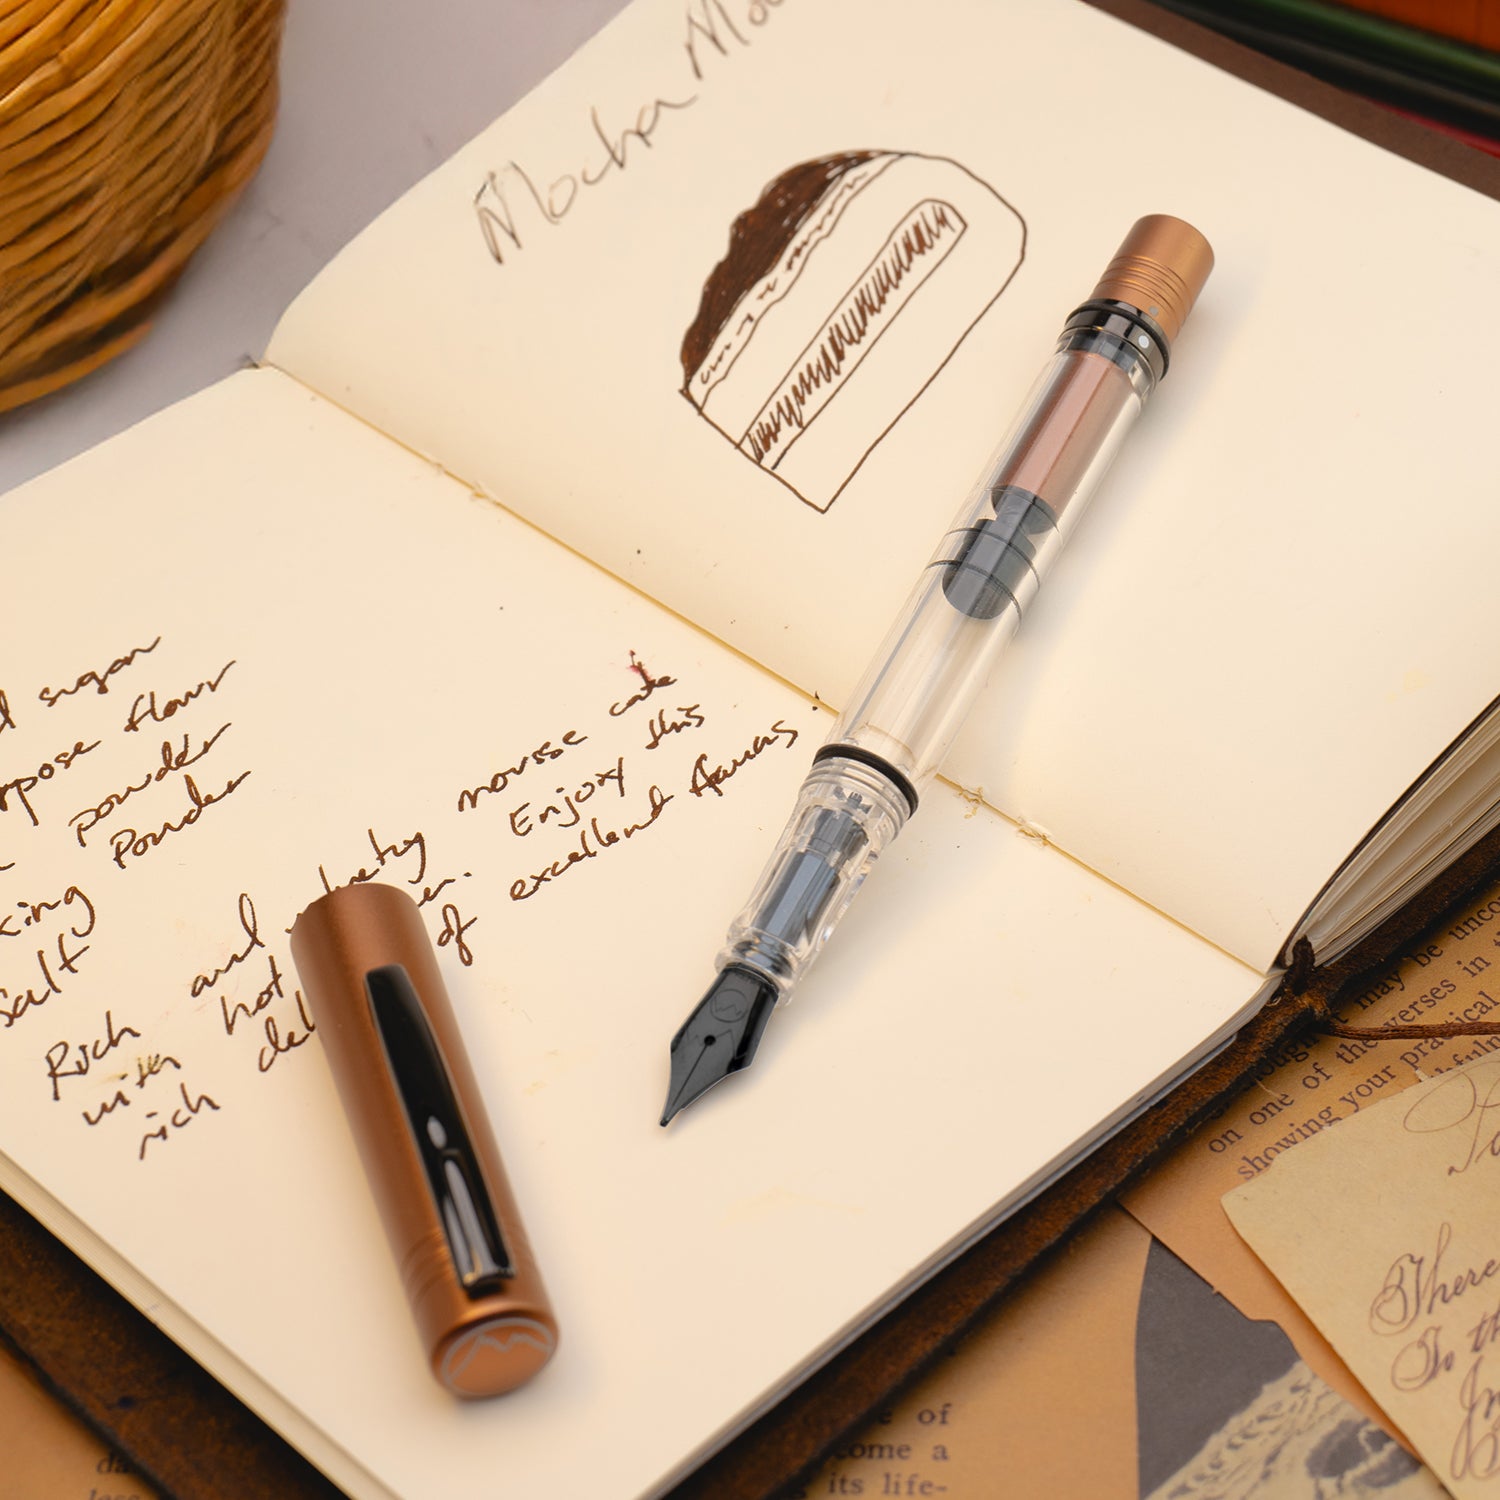 Mocha Mo
sugar
rpose flour
powder
Powder
king
salt
Rich and velvety mousse cake
with hot Enjoy this
rich del of excellent flavors
may be unco
one of the verses in
on one of the
showing your practical
of
come a
its life-
There
To th